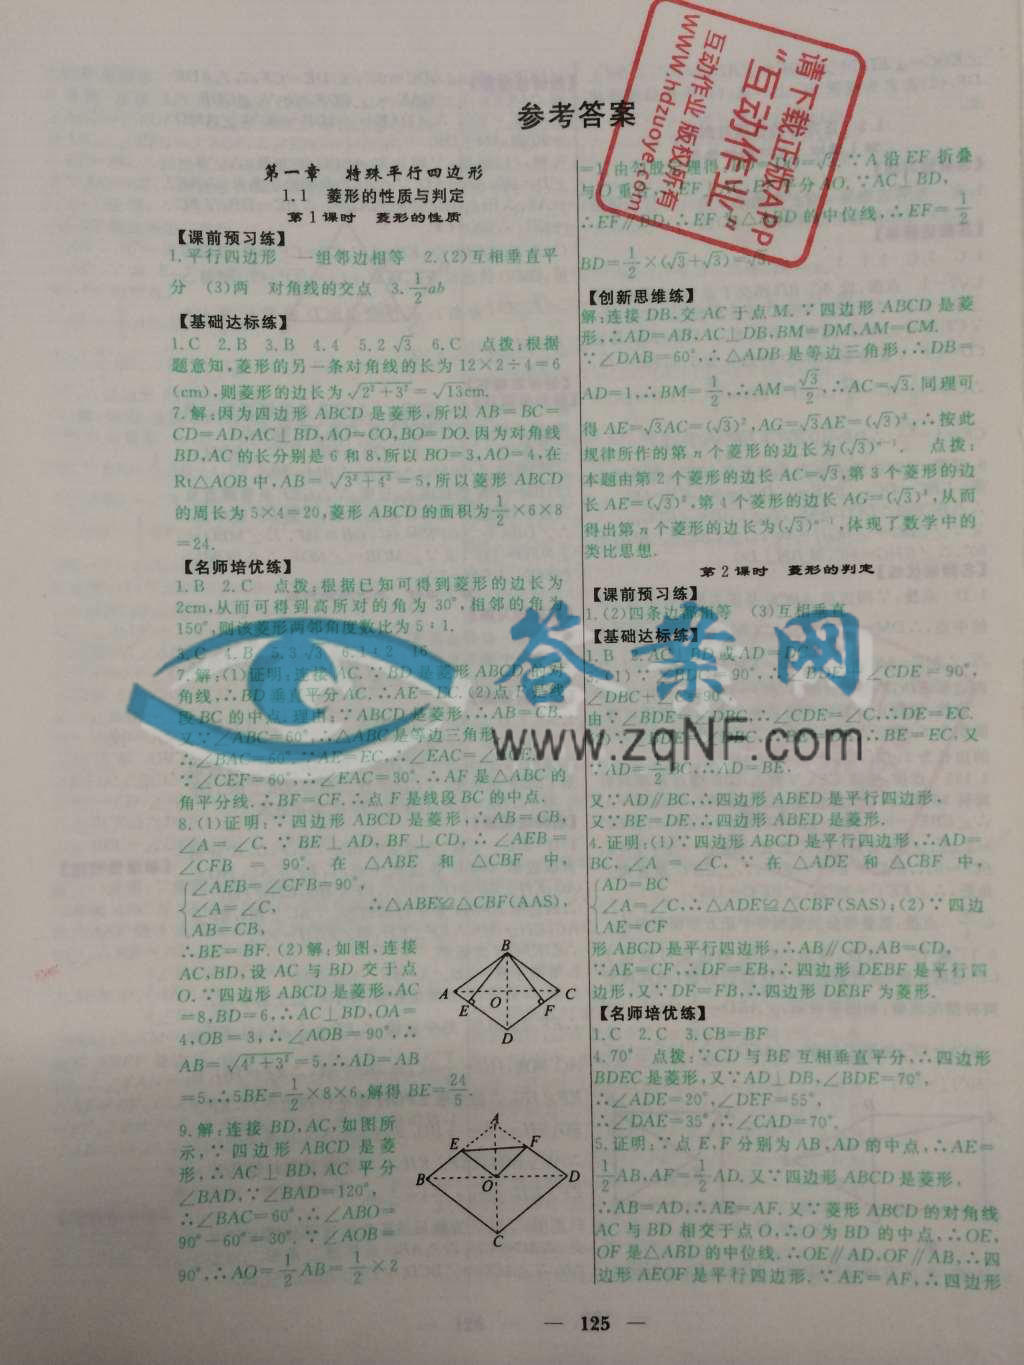 参考答案
第一章 特殊平行四边形
1.1 菱形的性质与判定
第1课时 菱形的性质
【课前预习练】
1.平行四边形 一组邻边相等 2.(2)互相垂直平
分 (3)两 对角线的交点 3.1/2ab
【基础达标练】
1.C 2.B 3.B 4.4 5.2√3 6.C 点拨:根据
题意知,菱形的另一条对角线的长为12×2÷4=6
(cm),则菱形的边长为√(2²+3²)=√13cm.
7.解:因为四边形ABCD是菱形,所以AB=BC=
CD=AD,AC⊥BD,AO=CO,BO=DO.因为对角线
BD,AC的长分别是6和8,所以BO=3,AO=4,在
Rt△AOB中,AB=√(3²+4²)=5,所以菱形ABCD
的周长为5×4=20,菱形ABCD的面积为1/2×6×8
=24.
【名师培优练】
1.B 2.C 点拨:根据已知可得到菱形的边长为
2cm,从而可得到高所对的角为30°,相邻的角为
150°,则该菱形两邻角度数比为5∶1.
3.C 4.B 5.3√3 6.1∶2 16
7.解:(1)证明:连接AC.∵BD是菱形ABCD的对
角线,∴BD垂直平分AC.∴AE=EC.(2)点F是线
段BC的中点.理由:∵ABCD是菱形,∴AB=CB.
又∵∠ABC=60°,∴△ABC是等边三角形,
∴∠BAC=60°.∵AE=EC,∴∠EAC=∠ACE.
∵∠CEF=60°,∴∠EAC=30°.∴AF是△ABC的
角平分线.∴BF=CF.∴点F是线段BC的中点.
8.(1)证明:∵四边形ABCD是菱形,∴AB=CB,
∠A=∠C.∵BE⊥AD,BF⊥CD,∴∠AEB=
∠CFB=90°.在△ABE和△CBF中,
∠AEB=∠CFB=90°,
∠A=∠C, ∴△ABE≌△CBF(AAS),
AB=CB,
∴BE=BF.(2)解:如图,连接
AC,BD,设AC与BD交于点
O.∵四边形ABCD是菱形,AC
=8,BD=6,∴AC⊥BD,OA=
4,OB=3,∴∠AOB=90°,∴
AB=√(4²+3²)=5,∴AD=AB
=5,∴5BE=1/2×8×6,解得BE=24/5.
B
A O C
E F
D
9.解:连接BD,AC,如图所
示,∵四边形ABCD是菱
形,∴AC⊥BD,AC平分
∠BAD,∵∠BAD=120°,
∴∠BAC=60°,∴∠ABO=
90°-60°=30°.∵∠AOB=
90°,∴AO=1/2AB=1/2×2
A
E F
B O D
C
=1,由勾股定理得 ∵A沿EF折叠
与O重合, 平分AO.∵AC⊥BD,
∴EF∥BD,∴EF为△ABD的中位线,∴EF=1/2
BD=1/2×(√3+√3)=√3.
【创新思维练】
解:连接DB,交AC于点M.∵四边形ABCD是菱
形,∴AD=AB,AC⊥DB,BM=DM,AM=CM.
∵∠DAB=60°,∴△ADB是等边三角形,∴DB=
AD=1,∴BM=1/2,∴AM=√3/2,∴AC=√3.同理可
得AE=√3AC=(√3)²,AG=√3AE=(√3)³,∴按此
规律所作的第n个菱形的边长为(√3)ⁿ⁻¹. 点拨:
本题由第2个菱形的边长AC=√3,第3个菱形的边
长AE=(√3)²,第4个菱形的边长AG=(√3)³,从而
得出第n个菱形的边长为(√3)ⁿ⁻¹,体现了数学中的
类比思想.
第2课时 菱形的判定
【课前预习练】
1.(2)四条边都相等 (3)互相垂直
【基础达标练】
1.B 2.AC⊥BD或AD=DC
=90°, ∠CDE=90°,
∠DBC+∠C=90°.
由∵∠BDE=∠DBC,∴∠CDE=∠C,∴DE=EC.
∴BE=EC.又
∵AD=1/2BC,∴AD=BE.
又∵AD∥BC,∴四边形ABED是平行四边形,
又∵BE=DE,∴四边形ABED是菱形.
4.证明:(1)∵四边形ABCD是平行四边形,∴AD=
BC,∠A=∠C,∵在△ADE和△CBF中,
AD=BC
∠A=∠C,∴△ADE≌△CBF(SAS);(2)∵四边
AE=CF
形ABCD是平行四边形,∴AB∥CD,AB=CD,
∵AE=CF,∴DF=EB,∴四边形DEBF是平行四
边形,又∵DF=FB,∴四边形DEBF为菱形.
【名师培优练】
1.C 2.C 3.CB=BF
4.70° 点拨:∵CD与BE互相垂直平分,∴四边形
BDEC是菱形,又∵AD⊥DB,∠BDE=70°,
∴∠ADE=20°,∠DEF=55°,
∴∠DAE=35°,∴∠CAD=70°.
5.证明:∵点E,F分别为AB,AD的中点,∴AE=
1/2AB,AF=1/2AD.又∵四边形ABCD是菱形,
∴AB=AD,∴AE=AF.又∵菱形ABCD的对角线
AC与BD相交于点O,∴O为BD的中点,∴OE,
OF是△ABD的中位线.∴OE∥AD,OF∥AB,∴四
边形AEOF是平行四边形.∵AE=AF,∴四边形
— 125 —
请下载正版APP
“互动作业”
互动作业 版权所有
www.hdzuoye.com
答案网
www.zqNF.com